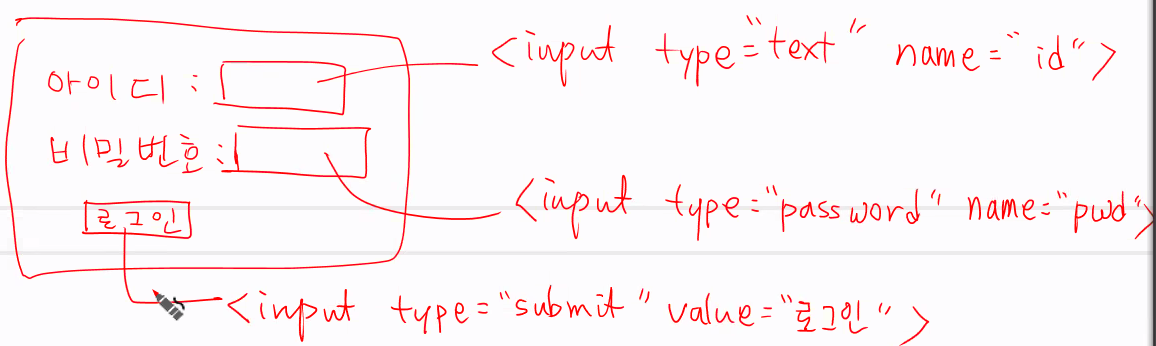 아이디 : <input type="text" name="id">
비밀번호 : <input type="password" name="pwd">
로그인
<input type="submit" value="로그인">